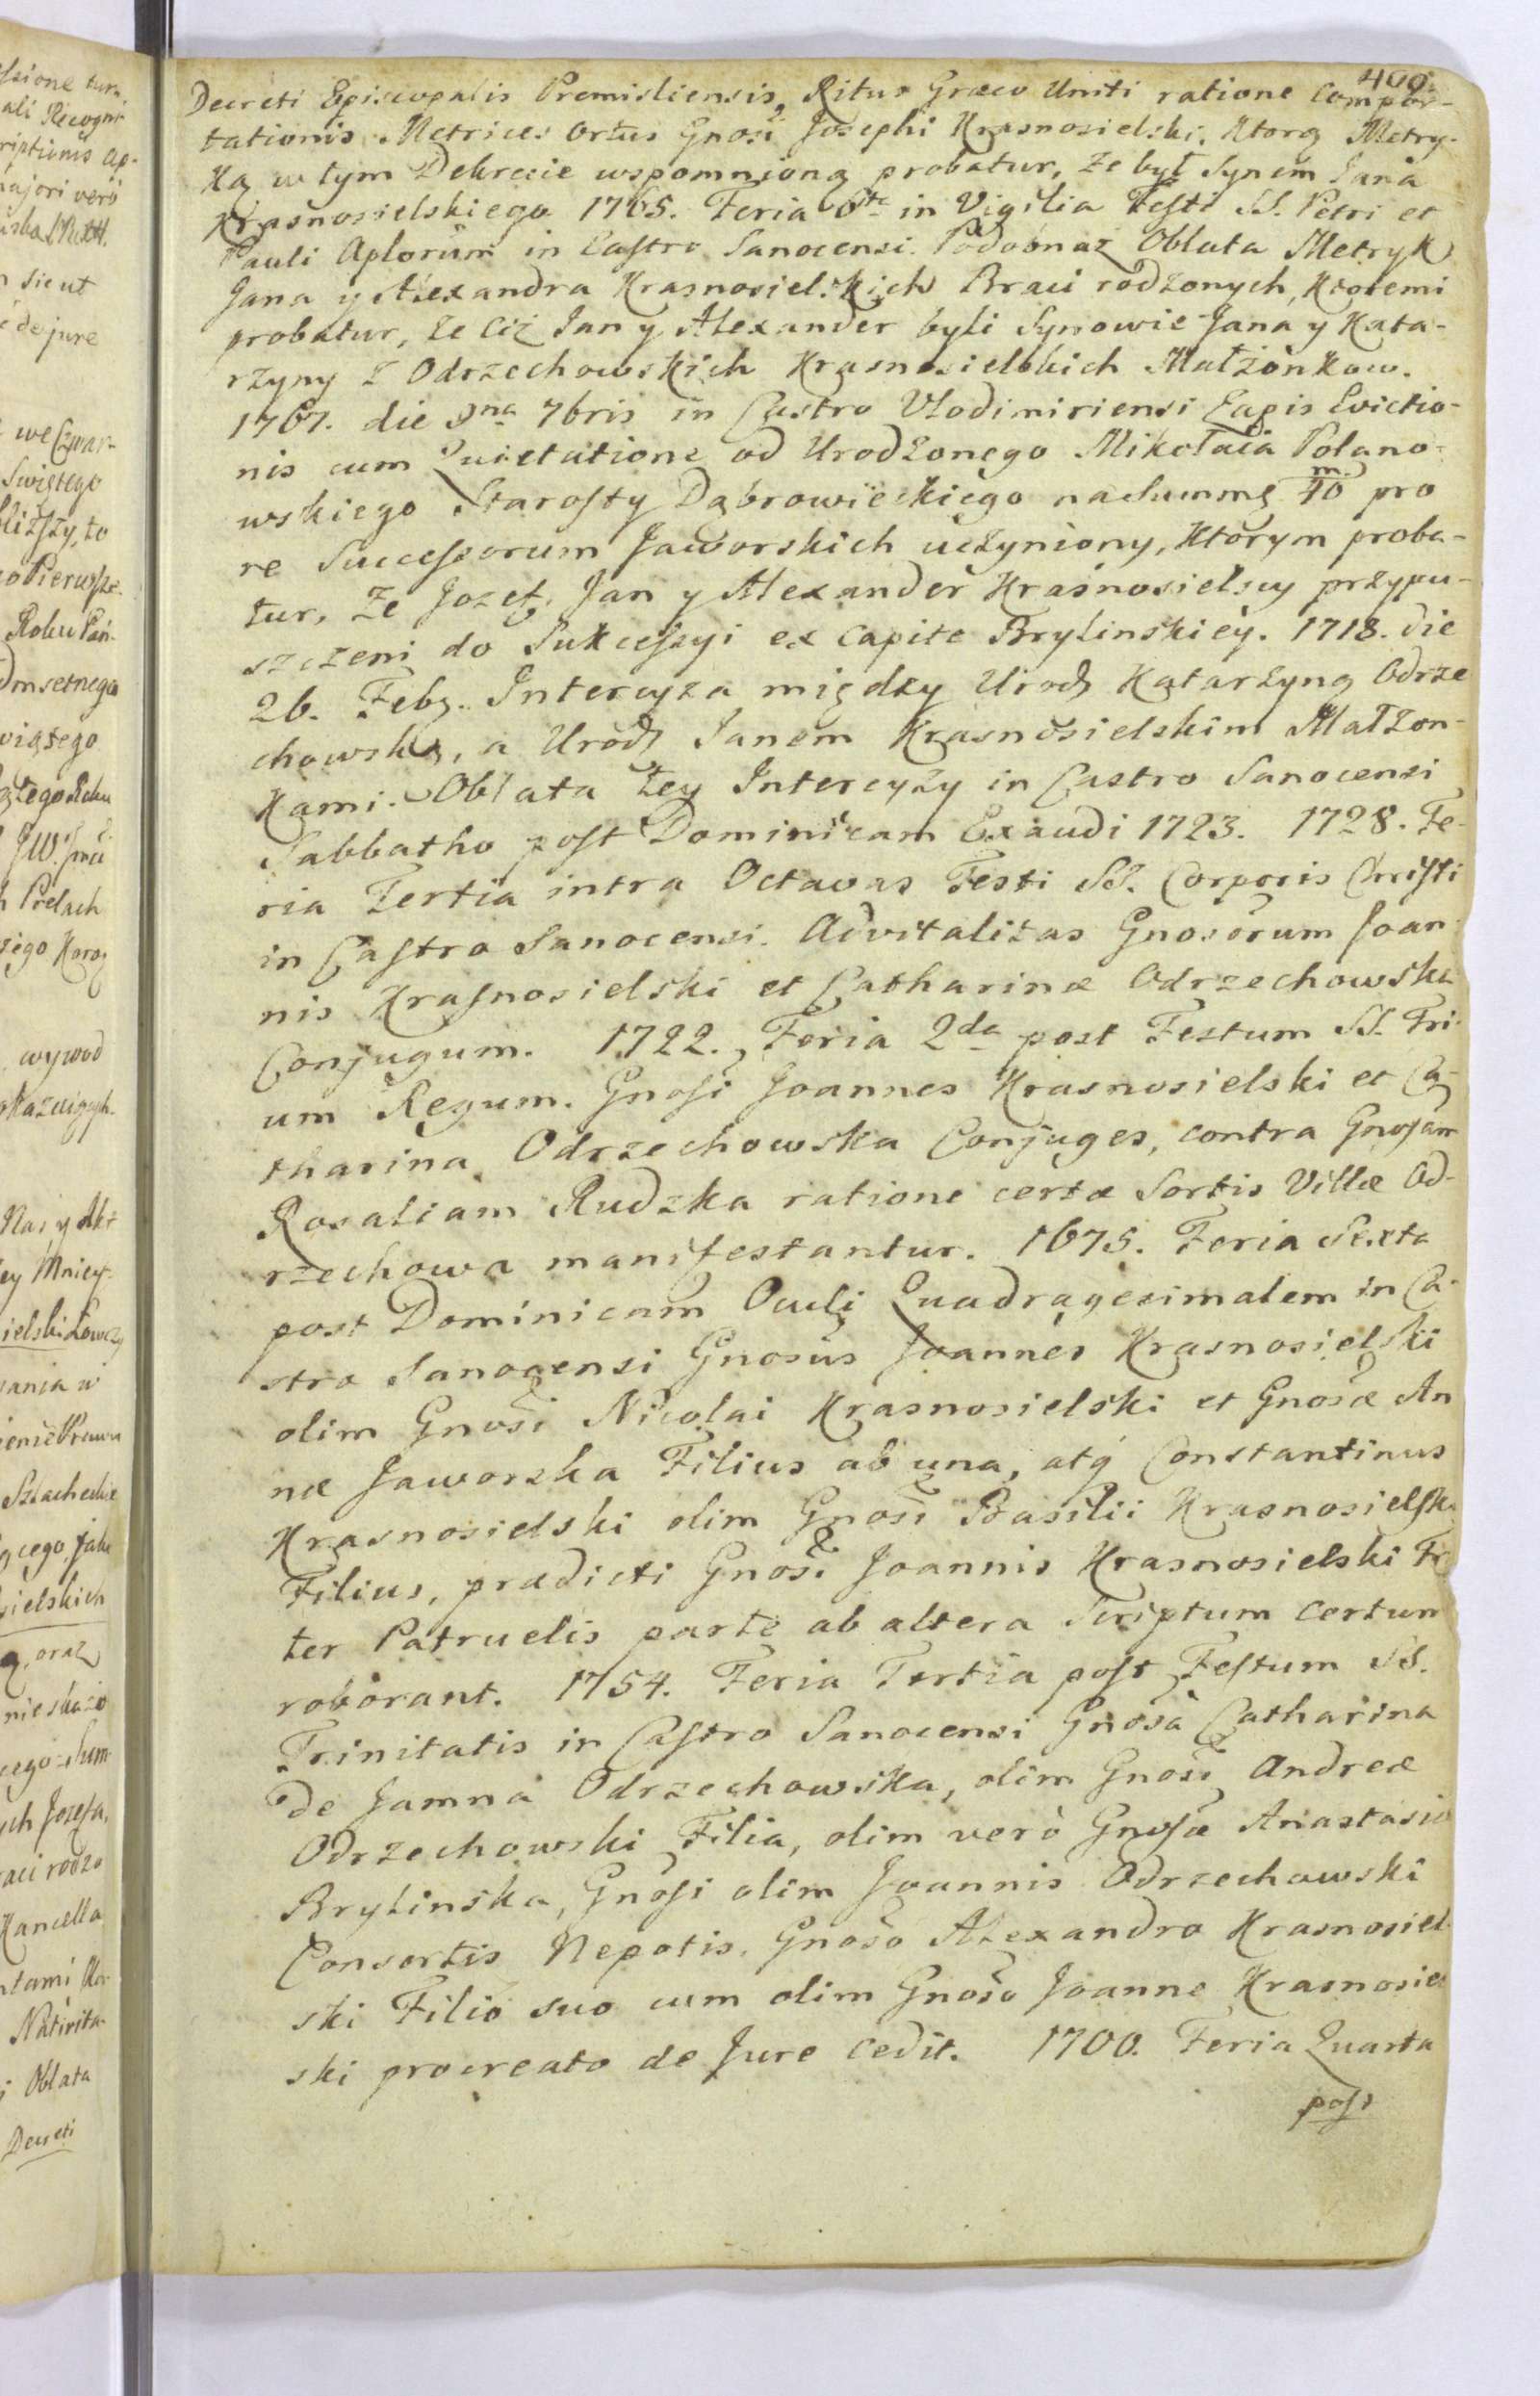 400.
Decreti Episcopalis Premisliensis, Ritus Græco Uniti ratione Compor-
tationis Metrices Ortus Gnosi Josephi Krasnosielski, Ktorą Metry-
Ką w tym Dekrecie wspomnioną probatur, że był Synem Jana
Krasnosielskiego 1765. Feria 6ta in Vigilia Festi SS. Petri et
Pauli Aplorum in Castro Sanocensi. Podobnaż Oblata Metryk
Jana y Alexandra Krasnosielskich Braci rodzonych, Ktoremi
probatur, że ciż Jan y Alexander byli Synowie Jana y Kata-
rzyny z Odrzechowskich Krasnosielskich Małżonkow.
1767. die 9na 7bris in Castro Vlodimiriensi Zapis Evictio-
nis cum Quietatione od Urodzonego Mikołaia Polano-
wskiego Starosty Dąbrowieckiego na Summę 10 m. pro
re Successorum Jaworskich uczyniony, Ktorym proba-
tur, że Jozef, Jan y Alexander Krasnosielscy przypu-
szczeni do Sukcessyi ex capite Brylinskiey. 1718. die
26. Feb. Intercyza między Urodz Katarzyną Odrze
chowską, a Urodz Janem Krasnosielskim Małżon-
Kami. Oblata tey Intercyzy in Castro Sanocensi
Sabbatho post Dominicam Exaudi 1723. 1728. Fe-
ria Tertia intra Octavas Festi SS. Corporis Christi
in Castro Sanocensi. Advitalitas Gnosorum Joan-
nis Krasnosielski et Catharinæ Odrzechowska
Conjugum. 1722. Feria 2da post Festum SS. Tri-
um Regum. Gnosi Joannes Krasnosielski et Ca-
tharina Odrzechowska Conjuges, contra Gnosam
Rosaliam Rudzka ratione certæ Sortis Villæ Od-
rzechowa manifestantur. 1675. Feria Sexta
post Dominicam Oculi Quadragesimalem in Ca-
stro Sanocensi Gnosus Joannes Krasnosielski
olim Gnosi Nicolai Krasnosielski et Gnosæ An
næ Jaworska Filius ab una, atq Constantinus
Krasnosielski olim Gnosi Basilii Krasnosielski
Filius, prædicti Gnosi Joannis Krasnosielski Fr
ter Patruelis parte ab altera Scriptum certum
roborant. 1754. Feria Tertia post Festum SS.
Trinitatis in Castro Sanocensi Gnosa Catharina
de Jamna Odrzechowska, olim Gnosi Andreæ
Odrzechowski Filia, olim verò Gnosæ Anastasiæ
Brylinska, Gnosi olim Joannis Odrzechowski
Consortis Nepotis, Gnoso Alexandro Krasnosiel-
ski Filio suo cum olim Gnoso Joanne Krasnosiel
ski procreato de Jure cedit. 1700. Feria Quarta
post